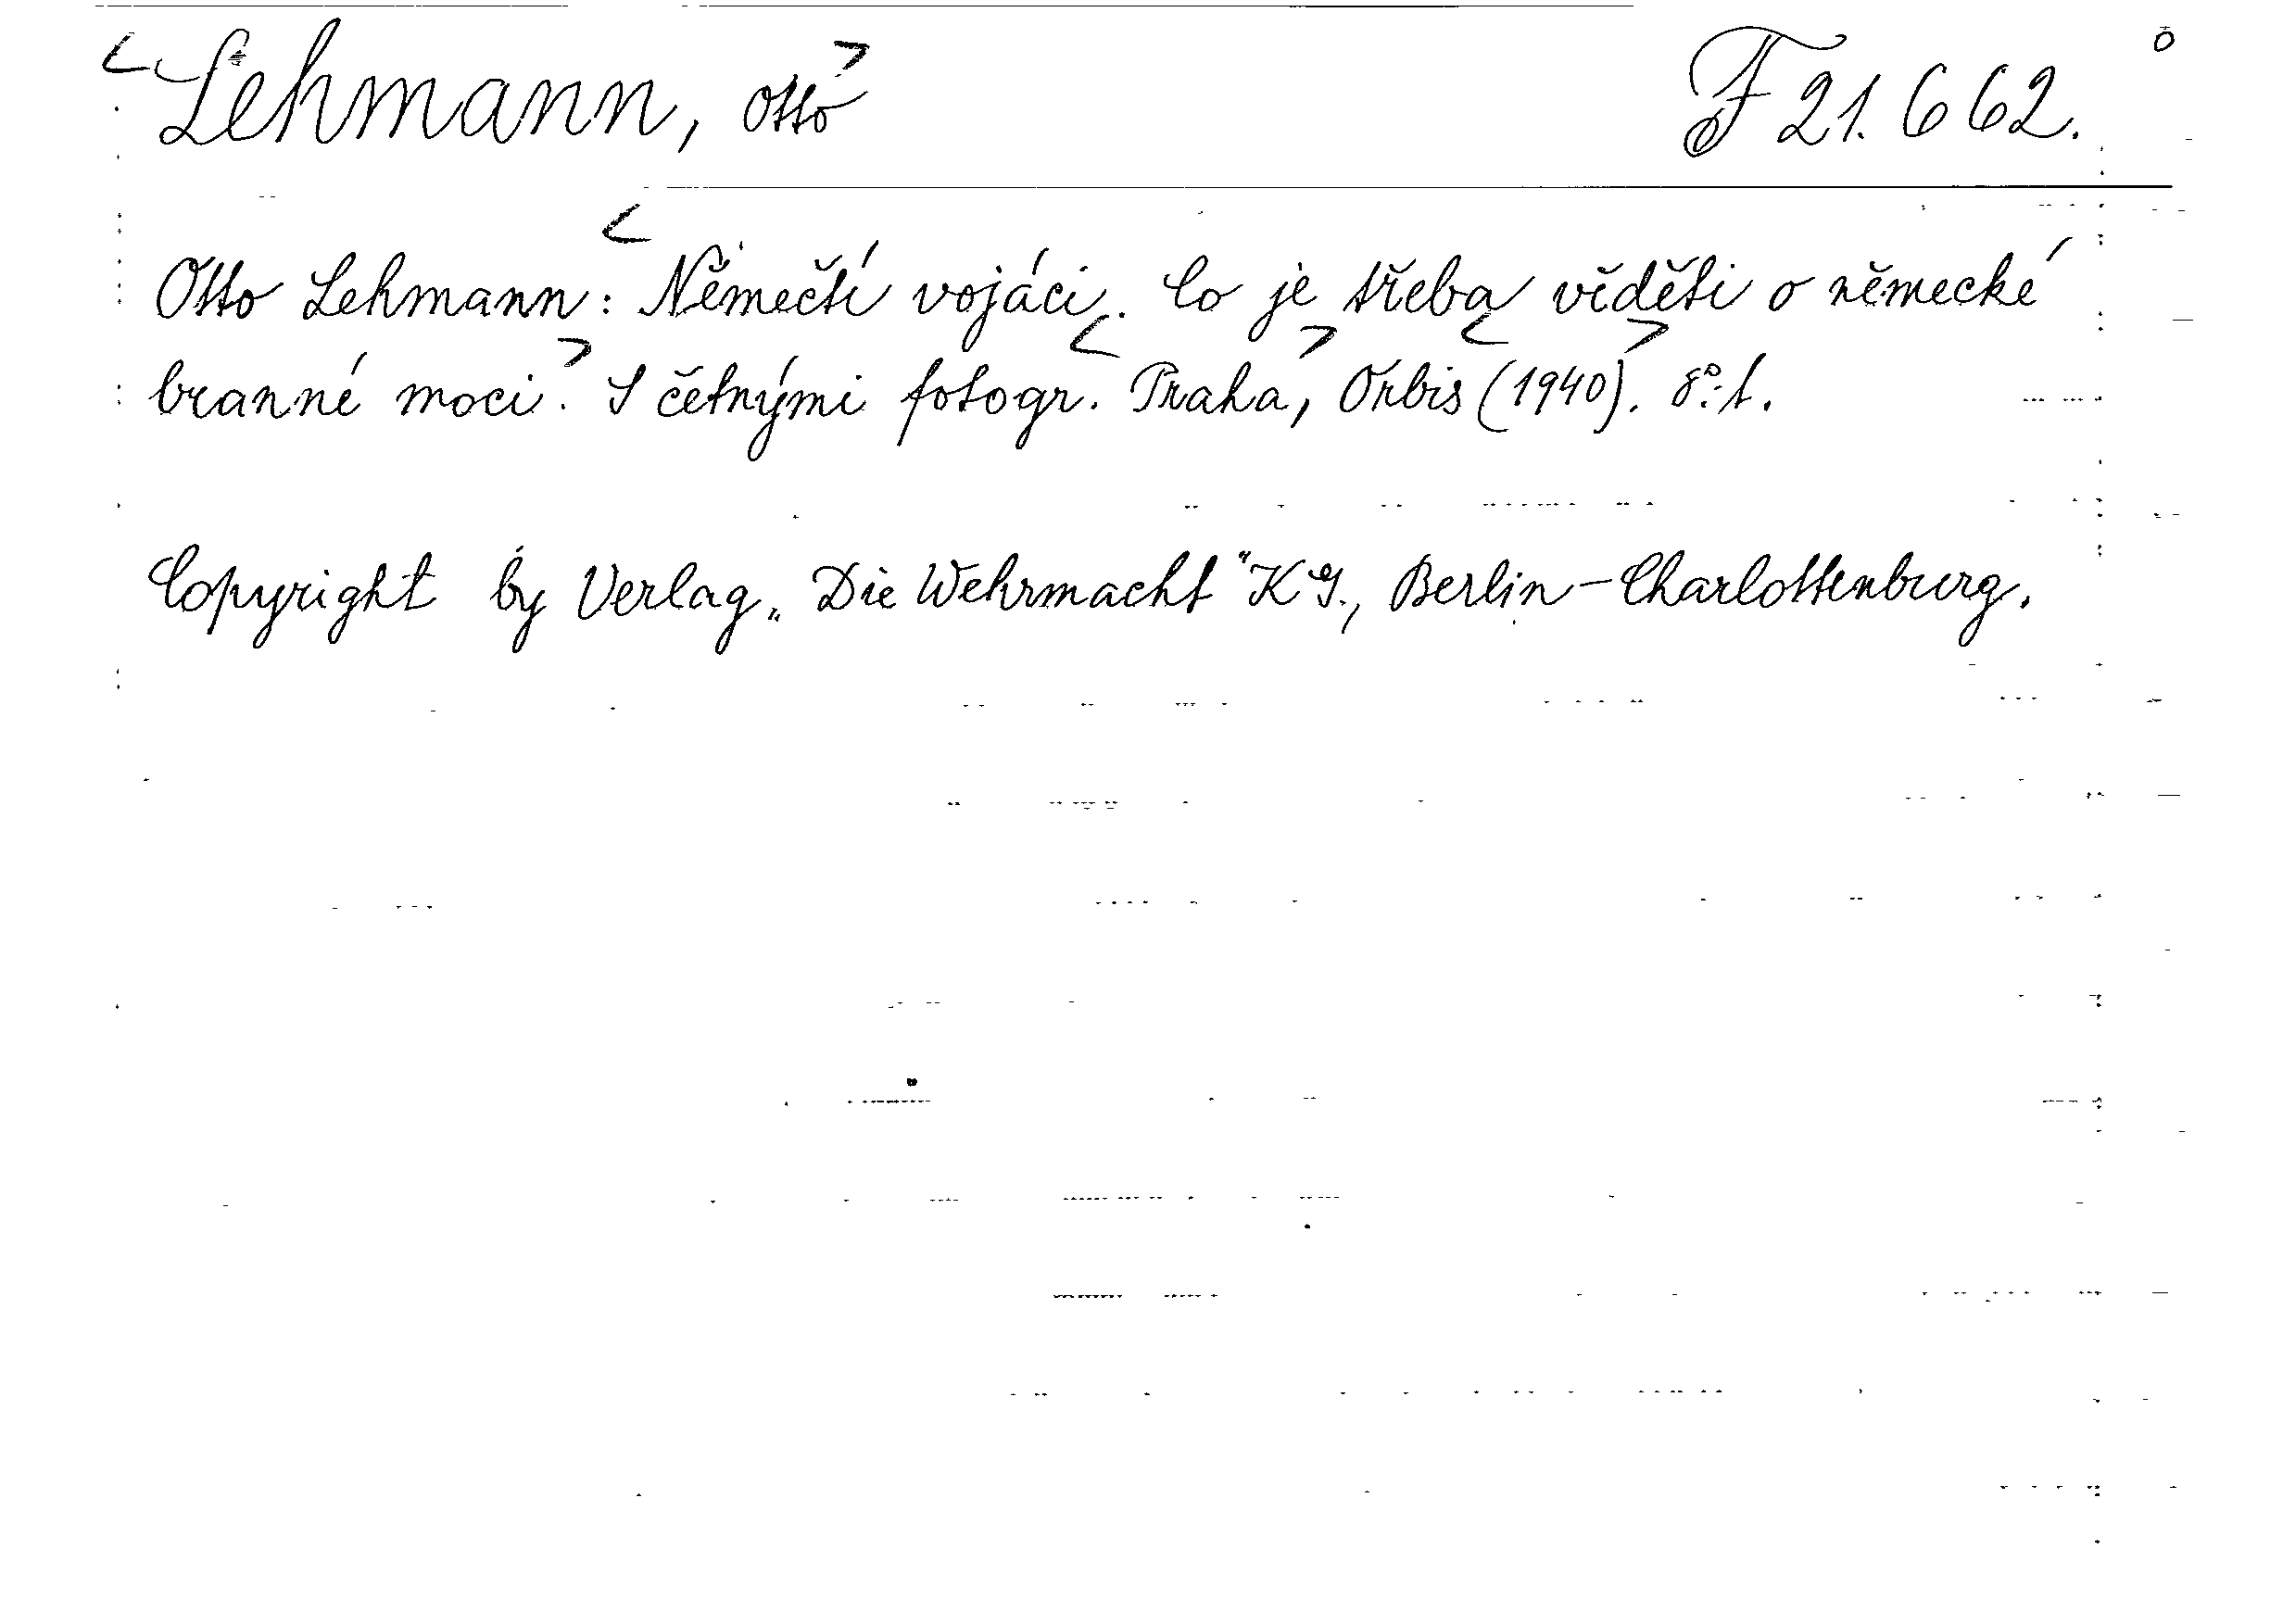 Lehmann, Otto F 21.662.
Otto Lehmann: Němečtí vojáci. Co je třeba věděti o německé
branné moci. S četnými fotogr. Praha, Orbis (1940). 8°. t.
Copyright by Verlag „Die Wehrmacht" K G., Berlin-Charlottenburg.